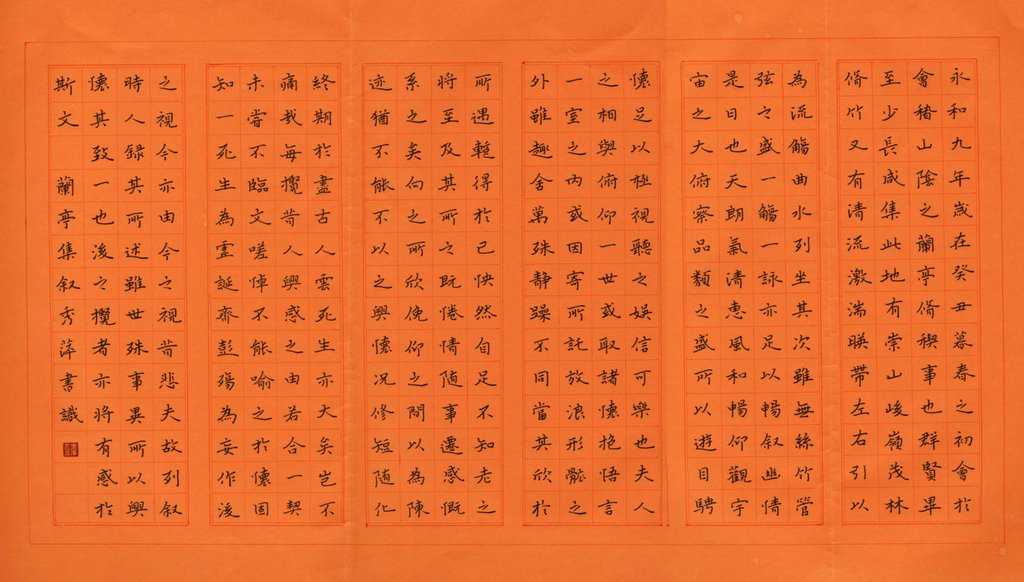 永和九年歲在癸丑暮春之初會於
會稽山陰之蘭亭脩稧事也群賢畢
至少長咸集此地有崇山峻嶺茂林
脩竹又有清流激湍暎帶左右引以
為流觴曲水列坐其次雖無絲竹管
弦之盛一觴一詠亦足以暢叙幽情
是日也天朗氣清惠風和暢仰觀宇
宙之大俯察品類之盛所以遊目騁
懷足以極視聽之娛信可樂也夫人
之相與俯仰一世或取諸懷抱悟言
一室之內或因寄所託放浪形骸之
外雖趣舍萬殊静躁不同當其欣於
所遇蹔得於己怏然自足不知老之
將至及其所之既惓情随事遷感慨
系之矣向之所欣俛仰之間以為陳
迹猶不能不以之興懷况修短随化
終期於盡古人雲死生亦大矣豈不
痛哉每攬昔人興感之由若合一契
未嘗不臨文嗟悼不能喻之於懷固
知一死生為虛誕齊彭殤為妄作後
之視今亦由今之視昔悲夫故列叙
時人録其所述雖世殊事異所以興
懷其致一也後之攬者亦將有感於
斯文 蘭亭集叙秀萍書識